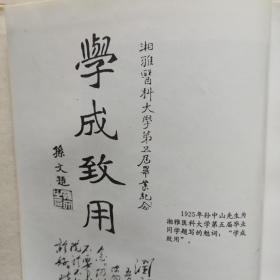 湘雅醫科大學第五屆畢業紀念
學成致用
孫文題
1925年孙中山先生为
湘雅医科大学第五届毕业
同学题写的勉词：“学成
致用”。